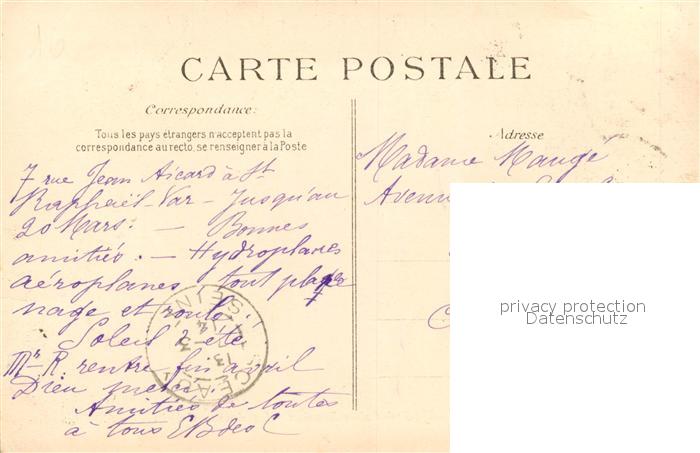 CARTE POSTALE
Correspondance:
Tous les pays étrangers n'acceptent pas la
correspondance au recto, se renseigner à la Poste
7 rue Jean Aicard à St
Raphaël-Var - Jusqu'au
20 Mars. - Bonnes
amitiés. - Hydroplanes
aéroplanes, tout
nage et roule!
Soleil d'été
Mr R. rentre fin avril
Dieu merci!
Amitiés de toutes
à tous
Adresse
Madame Maugé
Avenue
privacy protection
Datenschutz